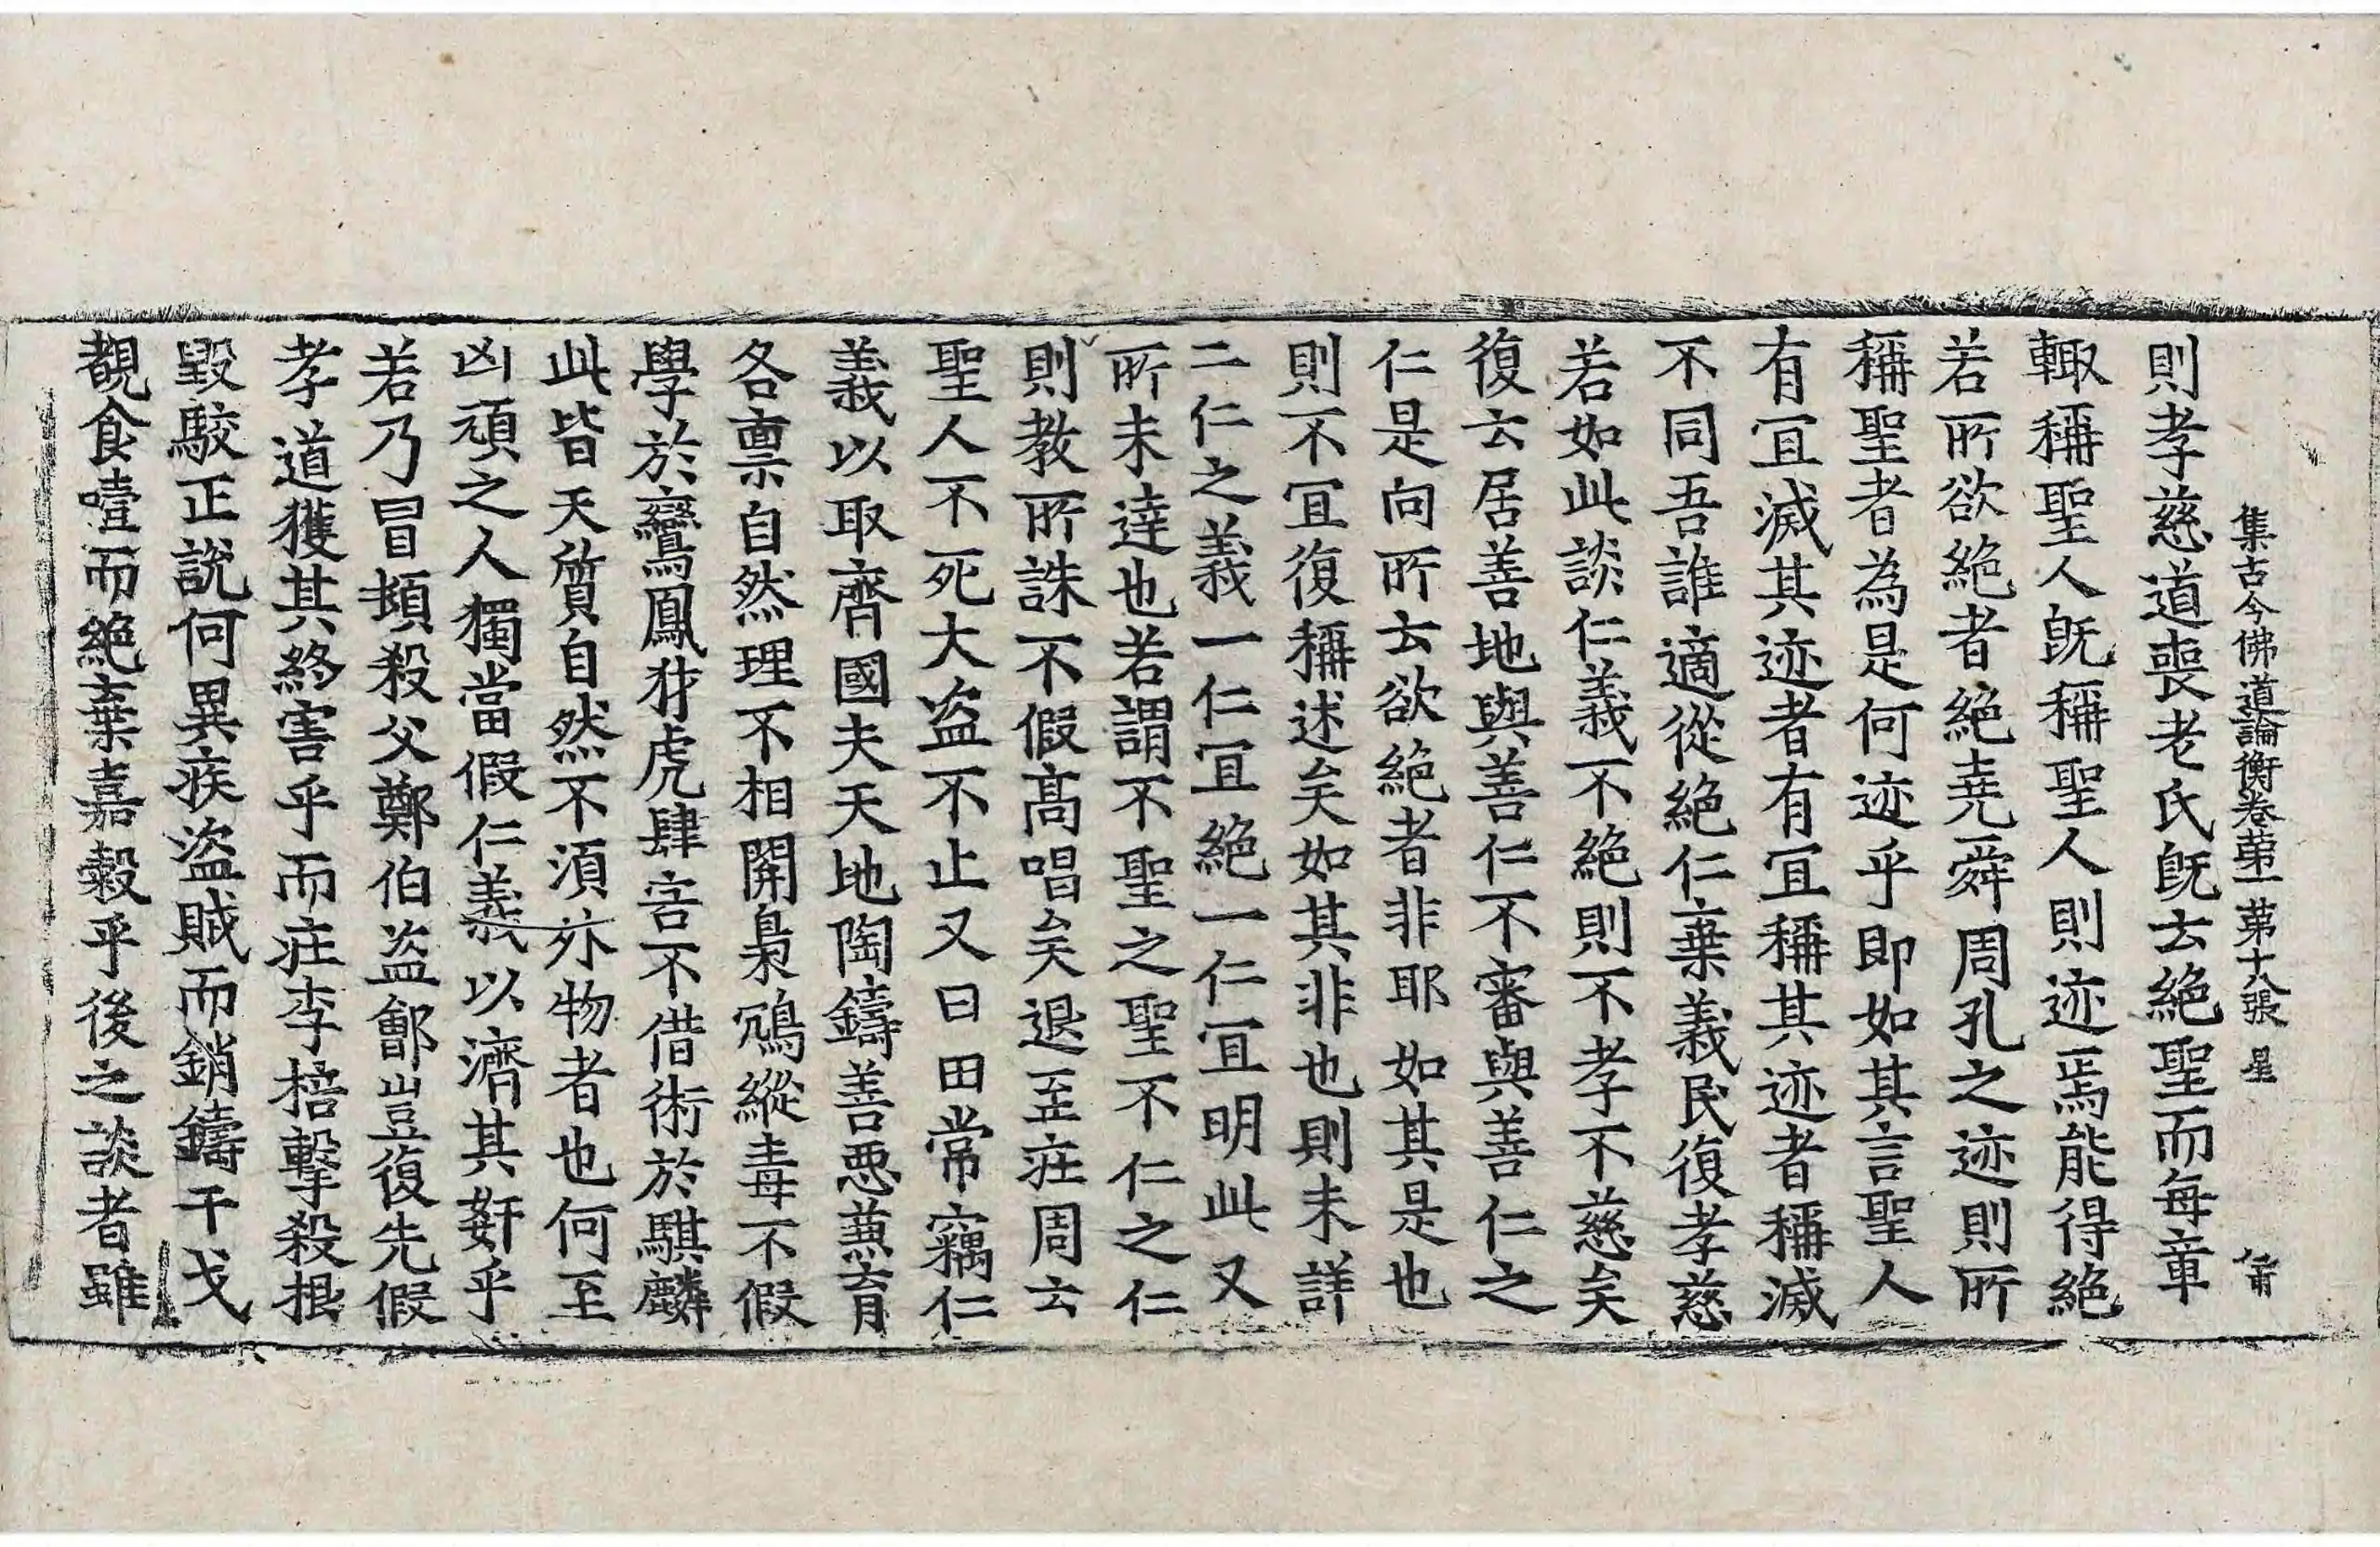 集古今佛道論衡卷苐一 苐十八張 星
則孝慈道喪老氏旣去絶聖而每章
輙稱聖人旣稱聖人則迹焉能得絶
若所欲絶者絶堯舜周孔之迹則所
稱聖者為是何迹乎即如其言聖人
有冝滅其迹者有冝稱其迹者稱滅
不同吾誰適從絶仁棄義民復孝慈
若如此談仁義不絶則不孝不慈矣
復云居善地與善仁不審與善仁之
仁是向所云欲絶者非耶如其是也
則不冝復稱述矣如其非也則未詳
二仁之義一仁冝絶一仁冝明此又
所未達也若謂不聖之聖不仁之仁
則教所誅不假髙唱矣退至庄周云
聖人不死大盗不止又曰田常竊仁
義以取齊國夫天地陶鑄善惡兼育
各禀自然理不相開梟鴆縱毒不假
學於鸞鳳犲虎肆害不借術於騏麟
此皆天質自然不湏外物者也何至
凶頑之人獨當假仁義以濟其姧乎
若乃冒頓殺父鄭伯盗鄶豈復先假
孝道獲其終害乎而庄李掊擊殺根
毀駮正説何異疾盗賊而銷鑄干戈
覩食噎而絶棄嘉穀乎後之談者雖